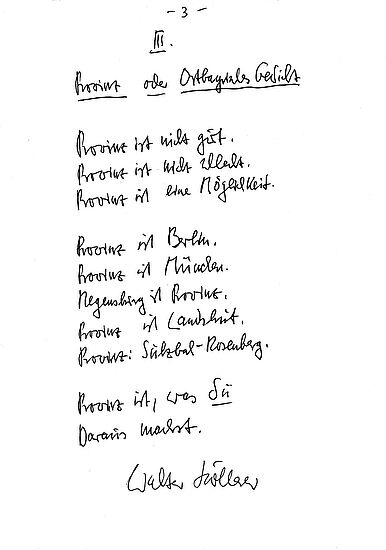 - 3 -
III.
Provinz oder Ortbezogenes Gedicht
Provinz ist nicht gut.
Provinz ist nicht schlecht.
Provinz ist eine Möglichkeit.
Provinz ist Berlin.
Provinz ist München.
Regensburg ist Provinz.
Provinz ist Landshut.
Provinz: Sulzbach-Rosenberg.
Provinz ist, was Du
Daraus machst.
Walter Höllerer